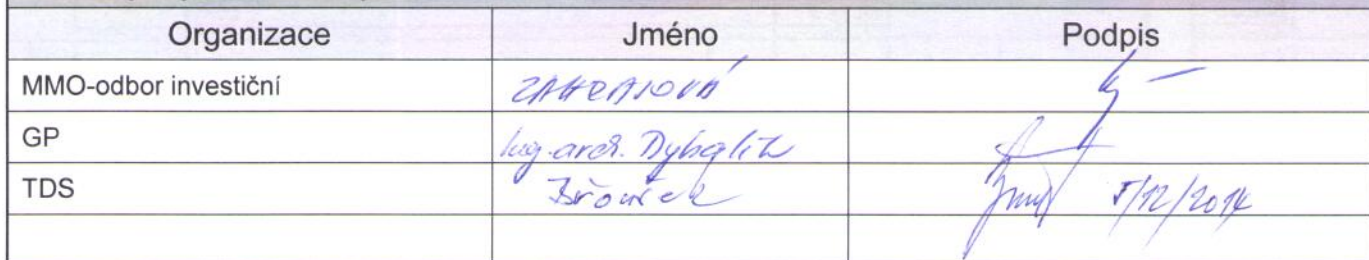 Organizace Jméno Podpis
MMO-odbor investiční
GP Ing. arch. Dybalík
TDS 5/12/2014